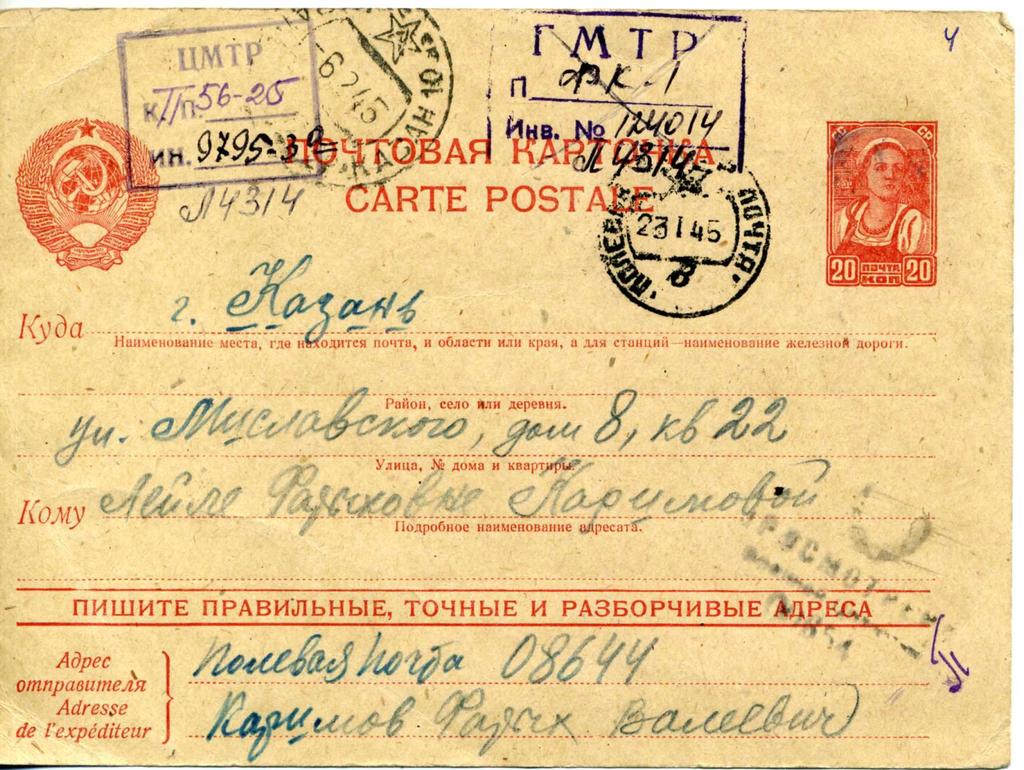 ЦМТР
КП 56-25
ин. 9795-39
Л4314
6 2 45
КАЗАН 10
ГМТР
П ФК-1
Инв. № 124014
Л4314
4
ПОЧТОВАЯ КАРТОЧКА
CARTE POSTALE
ПОЛЕВАЯ ПОЧТА
23 I 45
20 ПОЧТА КОП 20
Куда г. Казань
Наименование места, где находится почта, и области или края, а для станций—наименование железной дороги.
Район, село или деревня.
ул. Миславского, дом 8, кв 22
Улица, № дома и квартиры.
Кому Лейле Фатыховне Каримовой
Подробное наименование адресата.
ПИШИТЕ ПРАВИЛЬНЫЕ, ТОЧНЫЕ И РАЗБОРЧИВЫЕ АДРЕСА
Адрес отправителя
Adresse de l'expéditeur
Полевая почта 08644
Каримов Фатых Валеевич